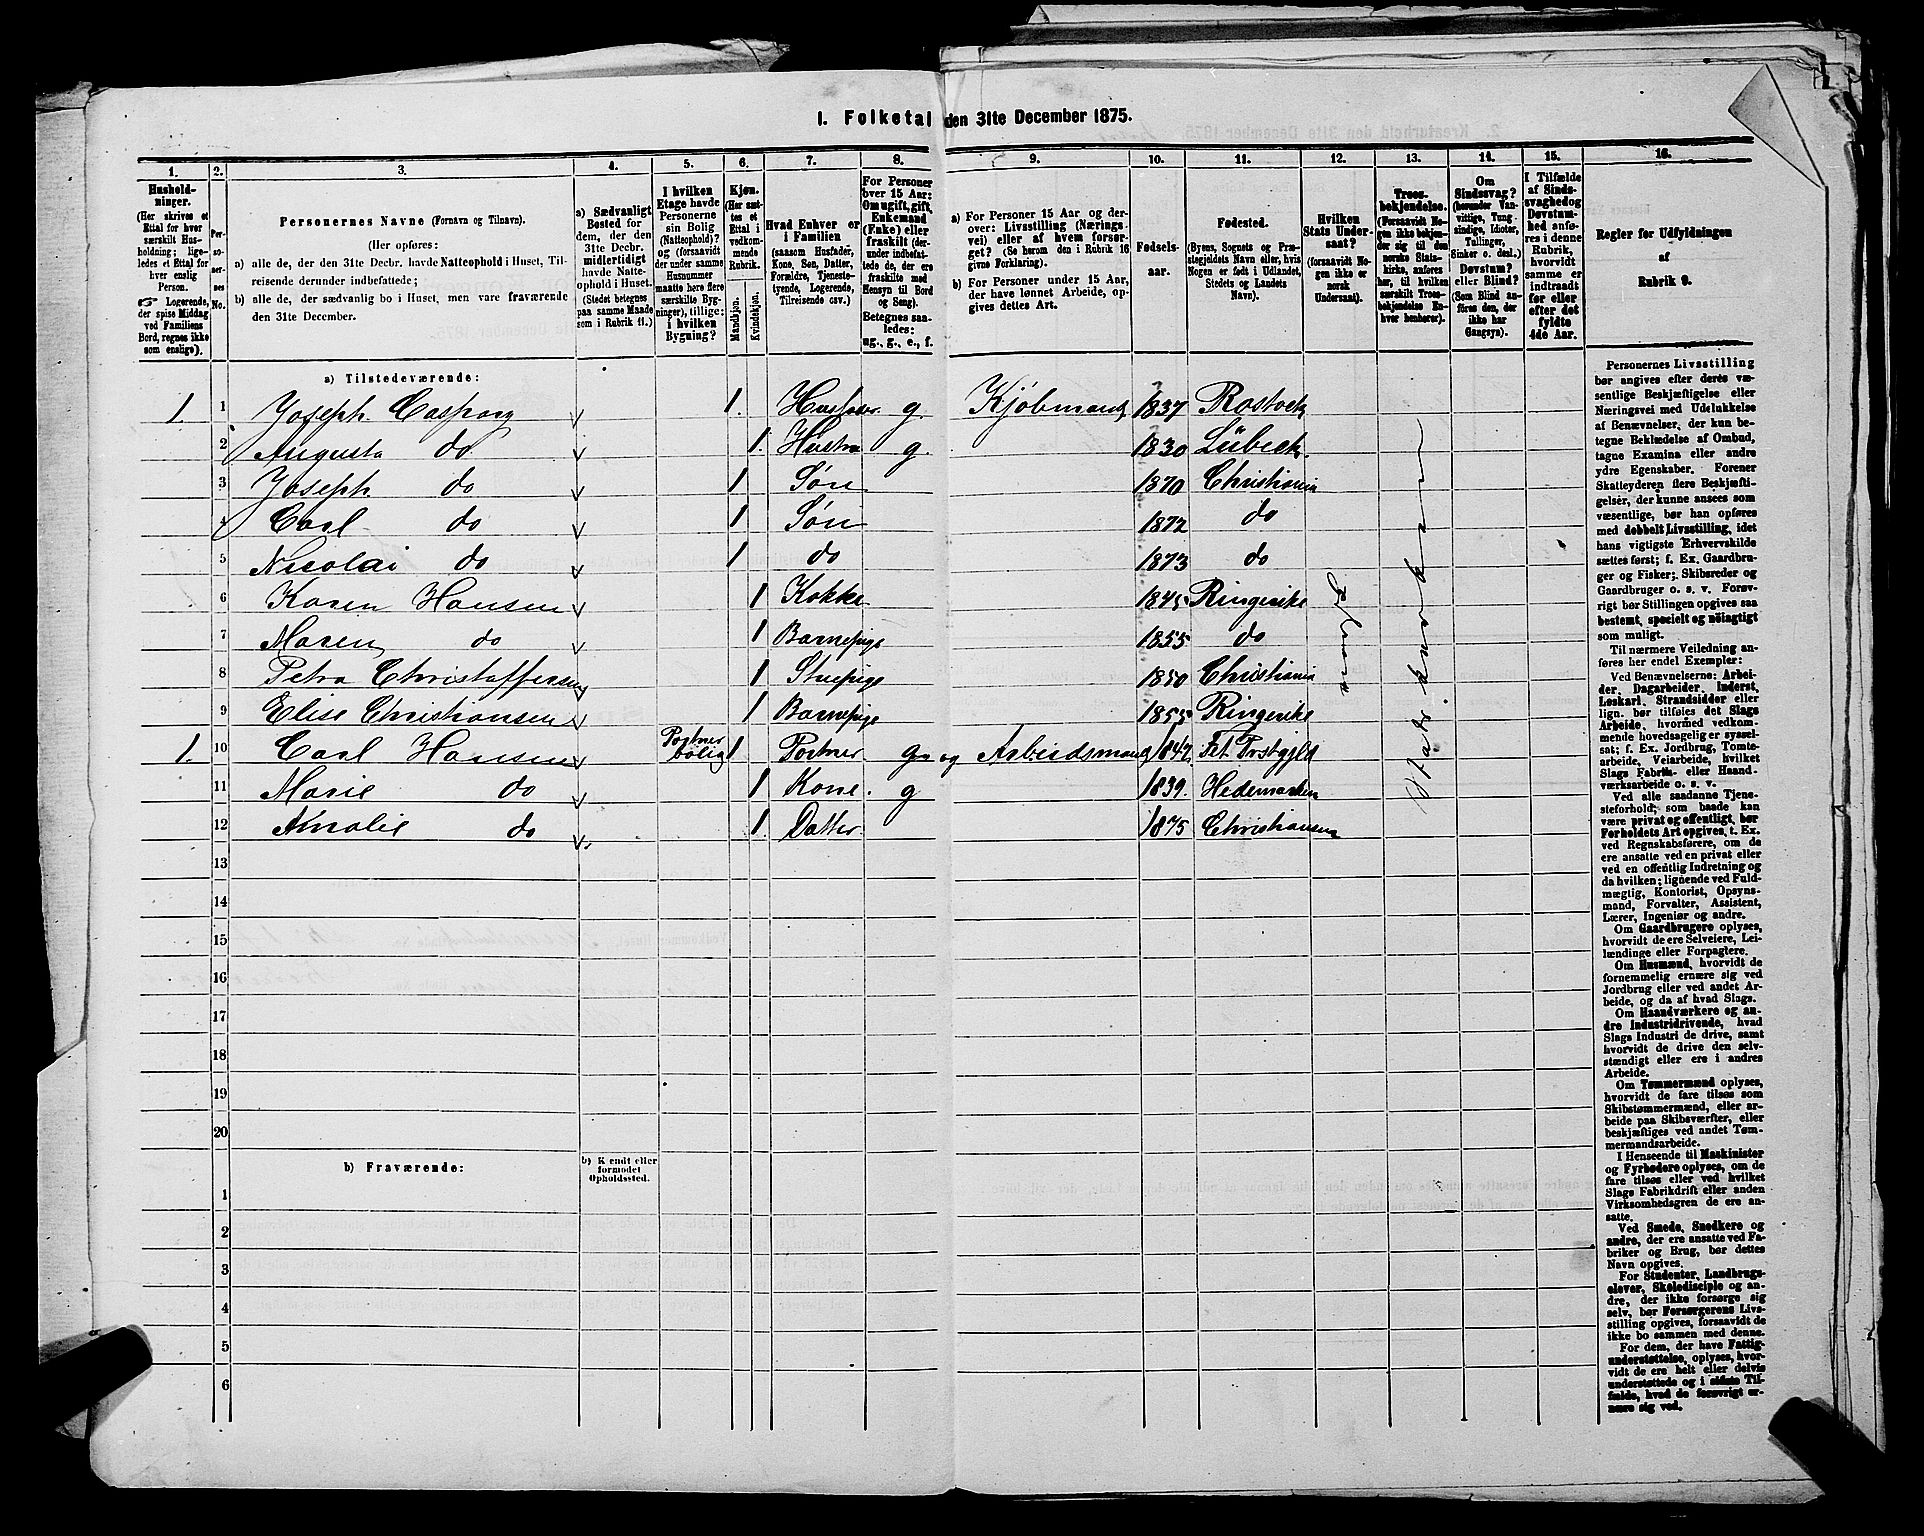 1. Folketal den 31te December 1875.
1. 2. 3. 4. 5. 6. 7. 8. 9. 10. 11. 12. 13. 14. 15. 16.
Hushold-
ninger.
(Her skrives et
Ettal for hver
særskilt Hus-
holdning; lige-
ledes et Ettal for
hver enslig
Person.
☞ Logerende,
der spise Middag
ved Familiens
Bord, regnes ikke
som enslige).
Per-
so-
ner-
nes
No.
Personernes Navne (Fornavn og Tilnavn).
(Her opføres:
a) alle de, der den 31te Decbr. havde Natteophold i Huset, Til-
reisende derunder indbefattede;
b) alle de, der sædvanlig bo i Huset, men vare fraværende
den 31te December.
a) Sædvanligt
Bosted for
dem, der den
31te Decbr.
midlertidigt
havde Natte-
ophold i Huset.
(Stedet betegnes
paa samme Maade
som i Rubrik 11.)
I hvilken
Etage havde
Personerne
sin Bolig
(Natteophold)?
og (forsaavidt
der under samme
Husnummer
maatte høre flere
særskilte Byg-
ninger), tillige:
i hvilken
Bygning?
Kjøn.
(Her sæt-
tes et
Ettal i
vedkom-
mende
Rubrik.
Mandkjøn.
Kvindekjøn.
Hvad Enhver er
i Familien
(saasom Husfader,
Kone, Søn, Datter,
Forældre, Tjeneste-
tyende, Logerende,
Tilreisende csv.)
For Personer
over 15 Aar:
Om ugift, gift,
Enkemand
(Enke) eller
fraskilt (der-
under indbefat-
tede de, der ere
fraskilte med
Hensyn til Bord
og Seng).
Betegnes saa-
ledes:
ug., g., e., f.
a) For Personer 15 Aar og der-
over: Livsstilling (Nærings-
vei) eller af hvem forsør-
get? (Se herom den i Rubrik 16
givne Forklaring).
b) For Personer under 15 Aar,
der have lønnet Arbeide, op-
gives dettes Art.
Fødsels-
aar.
Fødested.
(Byens, Sognets og Præ-
stegjeldets Navn eller, hvis
Nogen er født i Udlandet,
Stedets og Landets
Navn).
Hvilken
Stats Under-
saat?
(norske Under-
saatter, forsaavidt No-
gen ikke er
norsk
Undersaat).
Troes-
bekjendelse.
(Forsaavidt No-
gen ikke bekjen-
der sig til den
norske Stats-
kirke, anføres
her, til hvilken
særskilt Troes-
bekjendelse En-
hver henhører).
Om
Sindssvag?
(herunder Van-
vittige, Tung-
sindige, Idioter,
Tullinger,
Sinker o. desl.)
Døvstum?
eller Blind?
(Som Blind an-
føres den, der
ikke har
Gangsyn).
I Tilfælde
af Sinds-
svaghed og
Døvstum-
hed anfø-
res i denne
Rubrik,
hvorvidt
samme er
indtraadt
før eller
efter det
fyldte
4de Aar.
Regler for Udfyldningen
af
Rubrik 9.
a) Tilstedeværende:
1. 1 Joseph Caspary 1. Husfader g Kjøbmand 1837 Rostock
2 Augusta do 1. Hustru g. 1830 Lübeck.
3 Joseph do 1 Søn 1870 Christiania
4 Carl do 1 Søn 1872 do
5 Nicolai do 1 do 1873 do
6 Karen Hansen 1 Kokke 1845 Ringerike
7 Maren do 1 Barnepige 1855 do
8 Petra Christoffersen 1 Stuepige 1850 Christiania
9 Elise Christiansen 1 Barnepige 1855 Ringerike
1. 10 Carl Hansen Portner bolig 1 Portner g og Arbeidsmand 1847 Fet Prstgjld
11 Marie do 1 Kone. g 1839. Hedemarken
12 Amalie do 1 Datter 1875 Christiania
Statskirken
13
14
15
16
17
18
19
20
b) Fraværende:
b) Kendt eller
formodet
Opholdssted.
1
2
3
4
5
6
Personernes Livsstilling
bør angives efter deres væ-
sentlige Beskjæftigelse eller
Næringsvei med Udelukkelse
af Benævnelser, der kun be-
tegne Beklædelse af Ombud,
tagne Examina eller andre
ydre Egenskaber. Forener
Skatteyderen flere Beskjæfti-
gelser, der kunne ansees som
væsentlige, bør han opføres
med dobbelt Livsstilling, idet
hans vigtigste Erhvervskilde
sættes først; f. Ex. Gaardbru-
ger og Fisker; Skibsreder og
Gaardbruger o. s. v. Forøv-
rigt bør Stillingen opgives saa
bestemt, specielt og nöiagtigt
som muligt.
Til nærmere Veiledning an-
føres her endel Exempler:
Ved Benævnelserne: Arbei-
der, Dagarbeider, Inderst,
Løskarl, Strandsidder eller
lign. bør tilføies det Slags
Arbeide, hvormed vedkom-
mende hovedsagelig er syssel-
sat; f. Ex. Jordbrug, Tomte-
arbeide, Veiarbeide, hvilket
Slags Fabrik- eller Haand-
værksarbeide o. s. v.
Ved alle saadanne Tjene-
steforhold, som baade kan
være privat og offentligt, bør
Forholdets Art opgives, t. Ex.
ved Regnskabsførere, om de
ere ansatte ved en privat eller
ved en offentlig Indretning og
da hvilken; lignende ved Fuld-
mægtig, Kontorist, Opsyns-
mand, Forvalter, Assistent,
Lærer, Ingeniør og andre.
Om Gaardbrugere oplyses,
hvorvidt de ere Selveiere, Lei-
lændinge eller Forpagtere.
Om Husmænd, hvorvidt de
fornemmelig ernære sig ved
Jordbrug eller ved andet Ar-
beide, og da af hvad Slags.
Om Haandværkere og an-
dre Industridrivende, hvad
Slags Industri de drive, samt
hvorvidt de drive den selv-
stændigt eller ere i andres
Arbeide.
Om Tømmermænd oplyses,
hvorvidt de fare tilsøs som
Skibstømmermænd, eller ar-
beide paa Skibsværfter, eller
beskjæftiges ved andet Tøm-
mermandsarbeide.
I Henseende til Maskinister
og Fyrbødere oplyses, om de
fare tilsøs eller ved hvilket
Slags Fabrikdrift eller anden
Virksomhedsgren de ere an-
satte.
Ved Smede, Snedkere og
andre, der ere ansatte ved Fa-
briker og Brug, bør dettes
Navn opgives.
For Studenter, Landbrugs-
elever, Skoledisciple og an-
dre, der ikke forsørge sig
selv, bør Forsørgerens Livs-
stilling opgives, forsaavidt de
ikke bo sammen med denne.
For dem, der have Fattig-
understøttelse, oplyses, hvor-
vidt de ere helt eller delvis
understøttede og i sidste Til-
fælde, hvad de forøvrigt er-
nære sig ved.